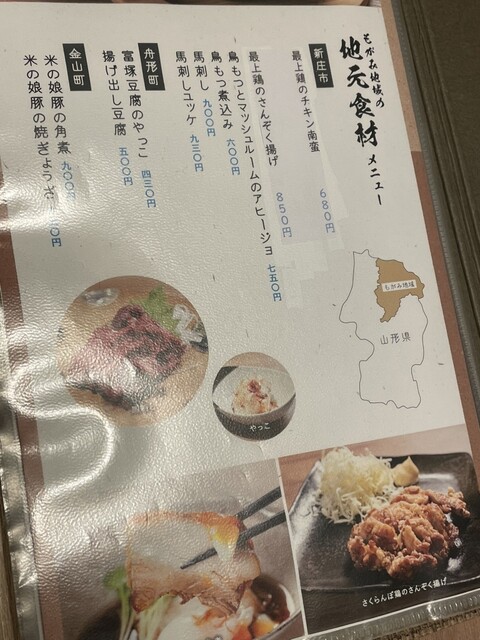 もがみ地域の
地元食材メニュー
新庄市
最上鶏のチキン南蛮 680円
最上鶏のさんぞく揚げ 850円
鳥もつとマッシュルームのアヒージョ 七五〇円
鳥もつ煮込み 六〇〇円
馬刺し 九〇〇円
馬刺しユッケ 九三〇円
舟形町
富塚豆腐のやっこ 四三〇円
揚げ出し豆腐 五〇〇円
金山町
米の娘豚の角煮 九〇〇円
米の娘豚の焼ぎょうざ 〇円
もがみ地域
山形県
やっこ
さくらんぼ鶏のさんぞく揚げ